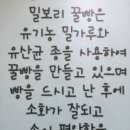 밀보리 꿀빵은
유기농 밀가루와
유산균 종을 사용하여
꿀빵을 만들고 있으며
빵을 드시고 난 후에
소화가 잘되고
속이 편안함을